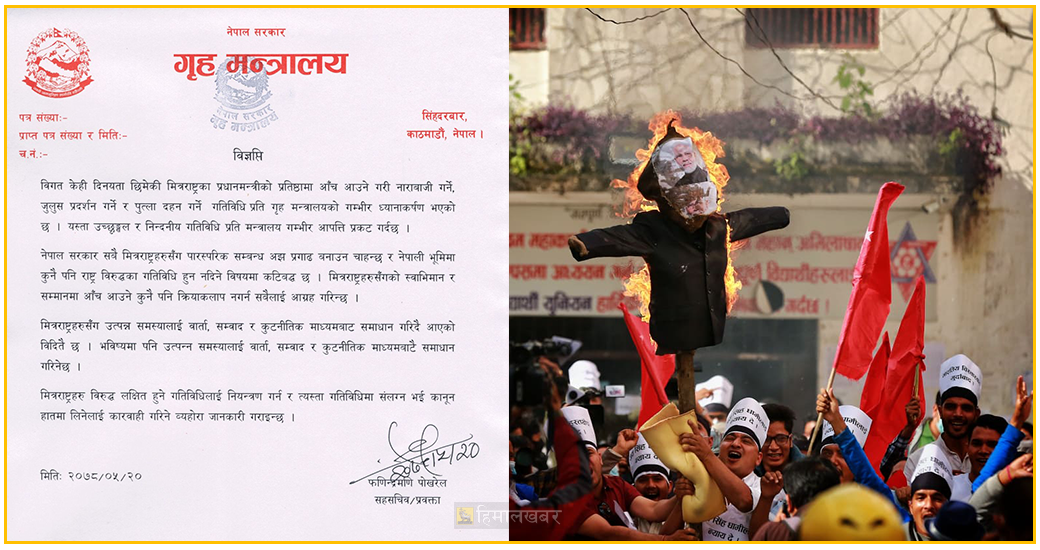 नेपाल सरकार
गृह मन्त्रालय
नेपाल सरकार
गृह मन्त्रालय
पत्र संख्याः-
प्राप्त पत्र संख्या र मितिः-
च.नं.:-
सिंहदरबार,
काठमाडौं, नेपाल ।
विज्ञप्ति
विगत केही दिनयता छिमेकी मित्रराष्ट्रका प्रधानमन्त्रीको प्रतिष्ठामा आँच आउने गरी नाराबाजी गर्ने,
जुलुस प्रदर्शन गर्ने र पुत्ला दहन गर्ने गतिविधि प्रति गृह मन्त्रालयको गम्भीर ध्यानाकर्षण भएको
छ । यस्ता उच्छृङ्खल र निन्दनीय गतिविधि प्रति मन्त्रालय गम्भीर आपत्ति प्रकट गर्दछ ।
नेपाल सरकार सवै मित्रराष्ट्रहरुसँग पारस्परिक सम्बन्ध अझ प्रगाढ बनाउन चाहन्छ र नेपाली भूमिमा
कुनै पनि राष्ट्र विरुद्धका गतिविधि हुन नदिने विषयमा कटिवद्ध छ । मित्रराष्ट्रहरुसँगको स्वाभिमान र
सम्मानमा आँच आउने कुनै पनि क्रियाकलाप नगर्न सवैलाई आग्रह गरिन्छ ।
मित्रराष्ट्रहरुसँग उत्पन्न समस्यालाई वार्ता, सम्वाद र कुटनीतिक माध्यमवाट समाधान गरिदै आएको
विदितै छ । भविष्यमा पनि उत्पन्न समस्यालाई वार्ता, सम्वाद र कुटनीतिक माध्यमवाटै समाधान
गरिनेछ ।
मित्रराष्ट्रहरु विरुद्ध लक्षित हुने गतिविधिलाई नियन्त्रण गर्न र त्यस्ता गतिविधिमा संलग्न भई कानून
हातमा लिनेलाई कारवाही गरिने व्यहोरा जानकारी गराइन्छ ।
मितिः २०७८/०५/२०
फणिन्द्रमणि पोखरेल
सहसचिव/प्रवक्ता
हिमालखबर
विद्यार्थीहरुलाई
मुर्दाबाद !
न्याय दे !
न्याय दे !